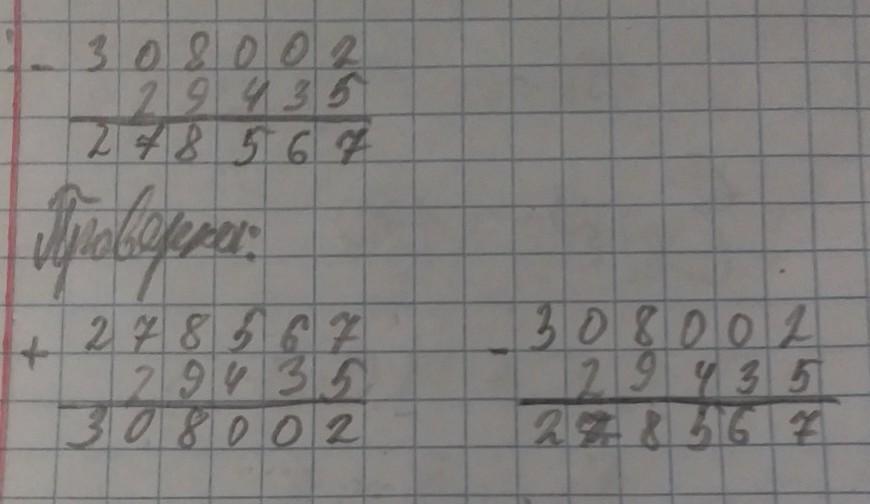 - 308002
29435
278567
Проверка:
+ 278567
29435
308002
- 308002
29435
278567